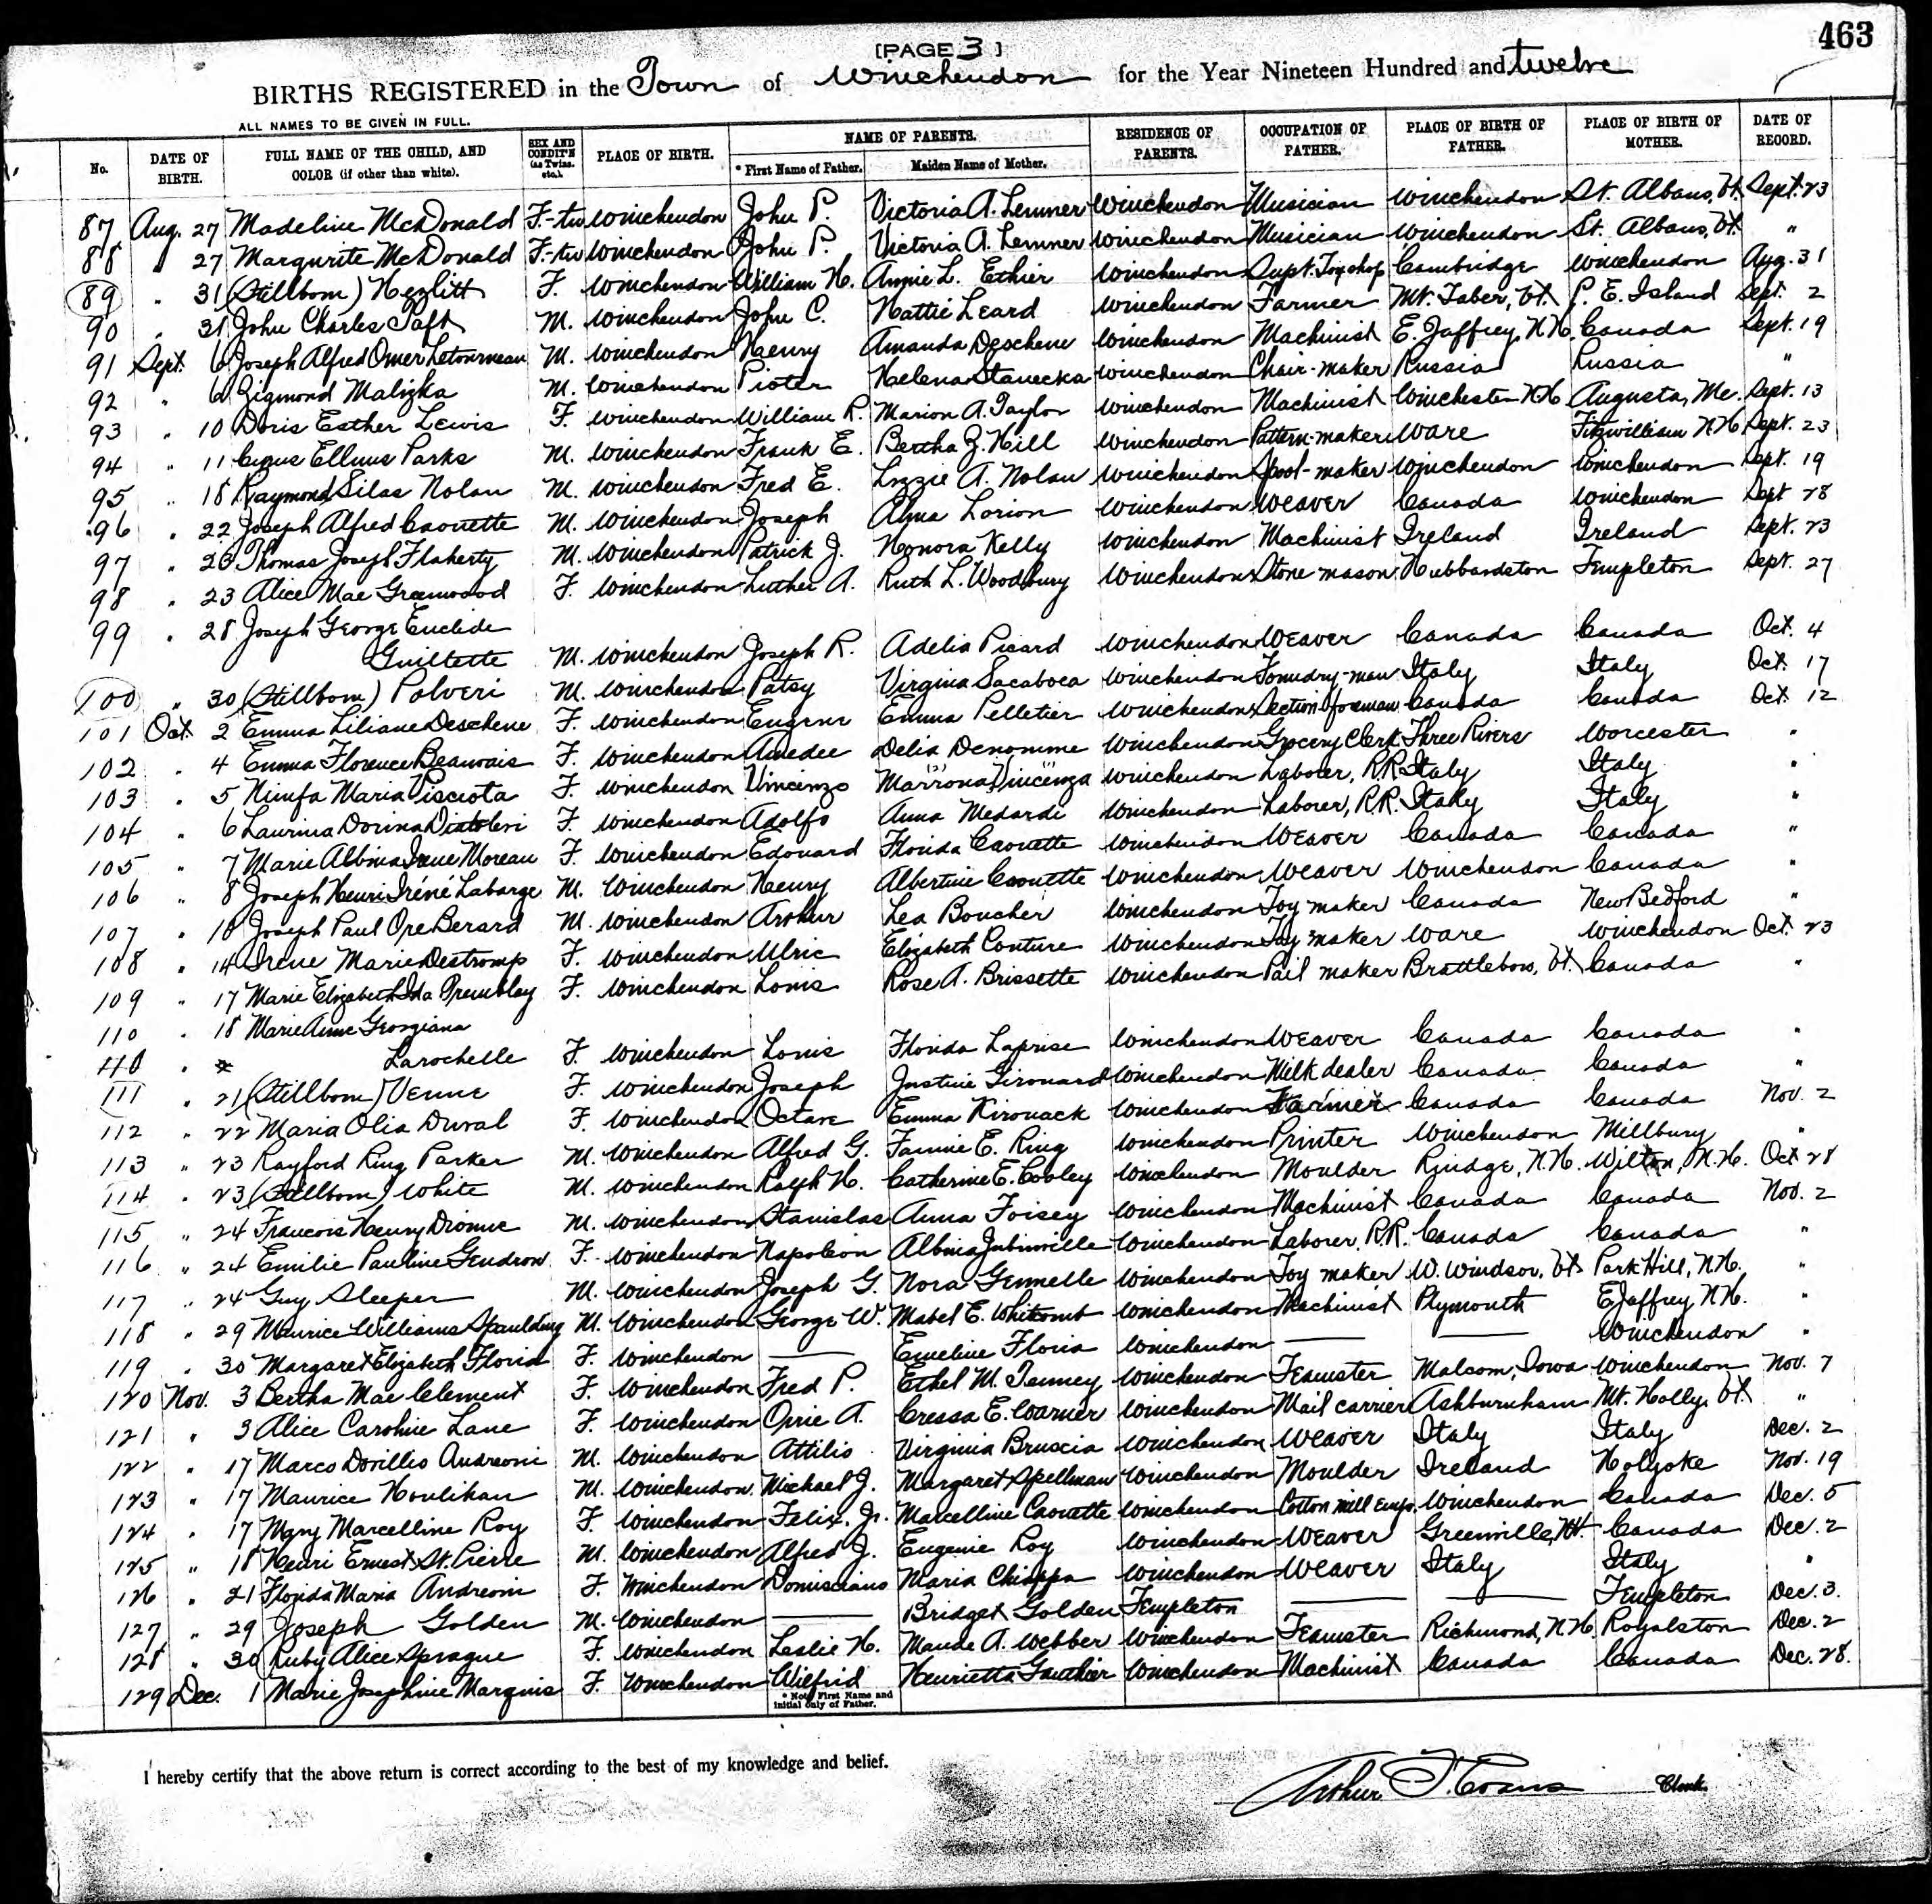 463
[PAGE 3]
BIRTHS REGISTERED in the Town of Winchendon for the Year Nineteen Hundred and twelve
ALL NAMES TO BE GIVEN IN FULL.
No. DATE OF BIRTH. FULL NAME OF THE CHILD, AND COLOR (if other than white). SEX AND CONDIT'N (as Twins, etc.). PLACE OF BIRTH. NAME OF PARENTS. * First Name of Father. Maiden Name of Mother. RESIDENCE OF PARENTS. OCCUPATION OF FATHER. PLACE OF BIRTH OF FATHER. PLACE OF BIRTH OF MOTHER. DATE OF RECORD.
87 Aug. 27 Madeline McDonald F.-tw Winchendon John P. Victoria A. Lemner Winchendon Musician Winchendon St. Albans, Vt. Sept. 23
88 " 27 Margurite McDonald F.-tw Winchendon John P. Victoria A. Lemner Winchendon Musician Winchendon St. Albans, Vt. "
89 " 31 (Stillborn) Hezlitt F. Winchendon William H. Annie L. Ethier Winchendon Supt. Toy shop Cambridge Winchendon Aug. 31
90 " 31 John Charles Taft M. Winchendon John C. Hattie Leard Winchendon Farmer Mt. Tabor, Vt. P. E. Island Sept. 2
91 Sept. 6 Joseph Alfred Omer Letourneau M. Winchendon Henry Amanda Deschene Winchendon Machinist E. Jaffrey, N.H. Canada Sept. 19
92 " 6 Zigmond Malizka M. Winchendon Pioter Helena Stanecka Winchendon Chair-maker Russia Russia "
93 " 10 Doris Esther Lewis F. Winchendon William R. Marion A. Taylor Winchendon Machinist Winchester N.H. Augusta, Me. Sept. 13
94 " 11 Parks M. Winchendon Frank E. Bertha Z. Hill Winchendon Pattern-maker Ware Fitzwilliam N.H. Sept. 23
95 " 18 Raymond Silas Nolan M. Winchendon Fred E. Lizzie A. Nolan Winchendon Spool-maker Winchendon Winchendon Sept. 19
96 " 22 Joseph Alfred Caouette M. Winchendon Joseph Alma Lorion Winchendon Weaver Canada Winchendon Sept 28
97 " 23 Thomas Joseph Flaherty M. Winchendon Patrick J. Honora Kelly Winchendon Machinist Ireland Ireland Sept. 23
98 " 23 Alice Mae Greenwood F. Winchendon Luther A. Ruth L. Woodbury Winchendon Stone mason Hubbardston Templeton Sept. 27
99 " 28 Joseph George Euclide
Guillette M. Winchendon Joseph R. Adelia Picard Winchendon Weaver Canada Canada Oct. 4
100 " 30 (Stillborn) Polveri M. Winchendon Patsy Virginia Sacaboca Winchendon Foundry-man Italy Italy Oct. 17
101 Oct. 2 Emma Liliane Deschene F. Winchendon Eugene Emma Pelletier Winchendon Section foreman Canada Canada Oct. 12
102 " 4 Emma Florence Beauvais F. Winchendon Amedee Delia Denomme Winchendon Grocery Clerk Three Rivers Worcester "
103 " 5 Ninfa Maria Pisciota F. Winchendon Vincenzo Marrona Vincenza Winchendon Laborer, R.R. Italy Italy "
104 " 6 Laurina Dorina F. Winchendon Adolfo Anna Medardi Winchendon Laborer, R.R. Italy Italy "
105 " 7 Marie Albina Irene Moreau F. Winchendon Edouard Florida Caouette Winchendon Weaver Canada Canada "
106 " 8 Joseph Henri Iréné Labarge M. Winchendon Henry Albertine Caouette Winchendon Weaver Winchendon Canada "
107 " 10 Joseph Paul Ope Berard M. Winchendon Arthur Lea Boucher Winchendon Toy maker Canada New Bedford "
108 " 14 Irene Marie Destromp F. Winchendon Ulric Elizabeth Conture Winchendon Toy maker Ware Winchendon Oct. 23
109 " 17 Marie Elizabeth Ida Tremblay F. Winchendon Louis Rose A. Brissette Winchendon Pail maker Brattleboro, Vt. Canada "
110 " 18 Marie Anne Georgiana
Larochelle F. Winchendon Louis Florida Laprise Winchendon Weaver Canada Canada "
111 " 21 (Stillborn) Venne F. Winchendon Joseph Justine Girouard Winchendon Milk dealer Canada Canada "
112 " 22 Maria Olia Duval F. Winchendon Octave Emma Kirouack Winchendon Farmer Canada Canada Nov. 2
113 " 23 Rayford Ring Parker M. Winchendon Alfred G. Fannie E. Ring Winchendon Printer Winchendon Millbury "
114 " 23 (Stillborn) White M. Winchendon Ralph H. Catherine E. Cobley Winchendon Moulder Rindge, N.H. Wilton, N.H. Oct 28
115 " 24 Francois Henry Dionne M. Winchendon Stanislas Anna Foisey Winchendon Machinist Canada Canada Nov. 2
116 " 24 Emilie Pauline Gendron F. Winchendon Napoleon Albina Jubinville Winchendon Laborer, R.R. Canada Canada "
117 " 24 Guy Sleeper M. Winchendon Joseph G. Nora Gemelle Winchendon Toy maker W. Windsor, Vt. Park Hill, N.H. "
118 " 29 Maurice Williams Spaulding M. Winchendon George W. Mabel E. Whitcomb Winchendon Machinist Plymouth E Jaffrey, N.H. "
119 " 30 Margaret Elizabeth Floria F. Winchendon — Emeline Floria Winchendon — — Winchendon "
120 Nov. 3 Bertha Mae Clement F. Winchendon Fred P. Ethel M. Tenney Winchendon Teamster Malcom, Iowa Winchendon Nov. 7
121 " 3 Alice Caroline Lane F. Winchendon Orrie A. Cressa E. Warner Winchendon Mail carrier Ashburnham Mt. Holly, Vt. "
122 " 17 Marco Dovillio Andreoni M. Winchendon Attilio Virginia Bruscia Winchendon Weaver Italy Italy Dec. 2
123 " 17 Maurice Houlihan M. Winchendon Michael J. Margaret Spellman Winchendon Moulder Ireland Holyoke Nov. 19
124 " 17 Mary Marcelline Roy F. Winchendon Felix, Jr. Marcelline Caouette Winchendon Cotton mill emp. Winchendon Canada Dec. 5
125 " 18 Henri Ernest St. Pierre M. Winchendon Alfred J. Eugenie Roy Winchendon Weaver Greenville, N.H. Canada Dec. 2
126 " 21 Florida Maria Andreoni F. Winchendon Maria Chiappa Winchendon Weaver Italy Italy "
127 " 29 Joseph Golden M. Winchendon — Bridget Golden Templeton — — Templeton Dec. 3.
128 " 30 Ruby Alice Sprague F. Winchendon Leslie H. Maude A. Webber Winchendon Teamster Richmond, N.H. Royalston Dec. 2
129 Dec. 1 Marie Josephine Marquis F. Winchendon Wilfrid Henrietta Gauthier Winchendon Machinist Canada Canada Dec. 28.
* Note First Name and initial only of Father.
I hereby certify that the above return is correct according to the best of my knowledge and belief.
Arthur F. Evans Clerk.